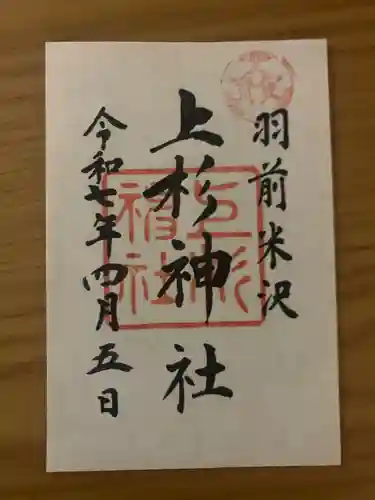 羽前米沢
上杉神社
令和七年四月五日
上杉神社